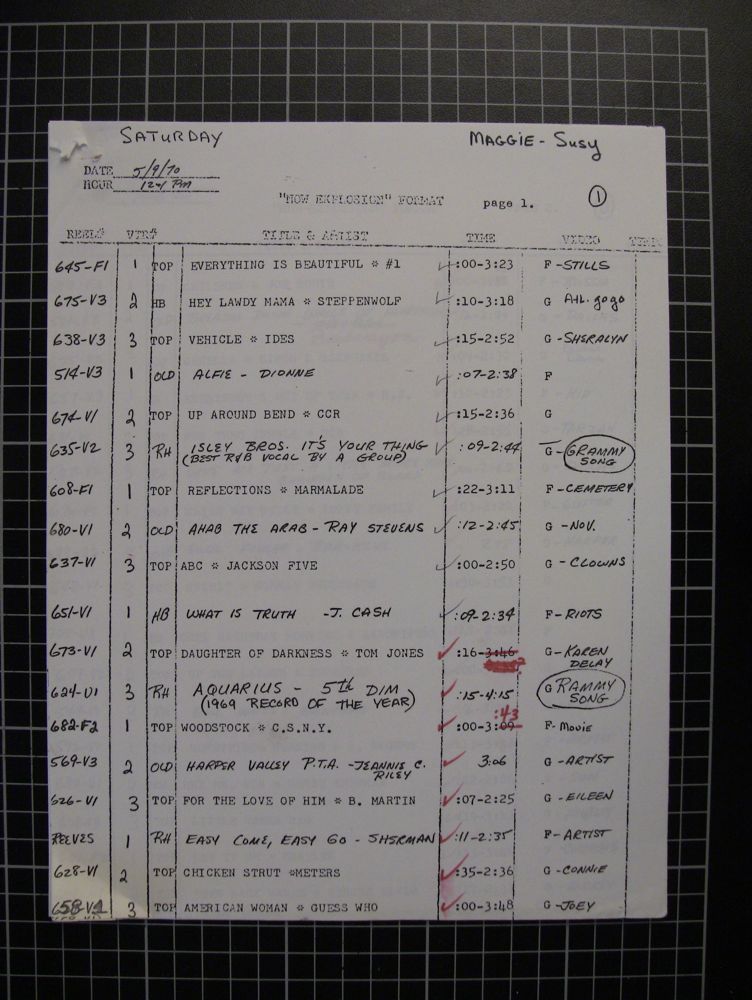 SATURDAY MAGGIE - Susy
DATE 5/9/70
HOUR 12-1 PM
"NOW EXPLOSION" FORMAT page 1. 1
REEL# VTR# TITLE & ARTIST TIME VIDEO TIME
645-F1 1 TOP EVERYTHING IS BEAUTIFUL * #1 :00-3:23 F-STILLS
675-V3 2 HB HEY LAWDY MAMA * STEPPENWOLF :10-3:18 G Atl. go go
638-V3 3 TOP VEHICLE * IDES :15-2:52 G-SHERALYN
514-V3 1 OLD ALFIE - DIONNE :07-2:38 F
674-V1 2 TOP UP AROUND BEND * CCR :15-2:36 G
635-V2 3 RH ISLEY BROS. IT'S YOUR THING :09-2:44 G-GRAMMY
(BEST R&B VOCAL BY A GROUP) SONG
608-F1 1 TOP REFLECTIONS * MARMALADE :22-3:11 F-CEMETERY
680-V1 2 OLD AHAB THE ARAB - RAY STEVENS :12-2:45 G-NOV.
637-V1 3 TOP ABC * JACKSON FIVE :00-2:50 G-CLOWNS
651-V1 1 HB WHAT IS TRUTH -J. CASH :09-2:34 F-RIOTS
673-V1 2 TOP DAUGHTER OF DARKNESS * TOM JONES :16-3:46 G-KAREN
DELAY
624-V1 3 RH AQUARIUS - 5th DIM :15-4:15 G RAMMY
(1969 RECORD OF THE YEAR) SONG
:43
682-F2 1 TOP WOODSTOCK * C.S.N.Y. :00-3:09 F-Movie
569-V3 2 OLD HARPER VALLEY P.T.A. -JEANNIE C. 3:06 G-ARTIST
RILEY
526-V1 3 TOP FOR THE LOVE OF HIM * B. MARTIN :07-2:25 G-EILEEN
REEV25 1 RH EASY COME, EASY GO - SHERMAN :11-2:35 F-ARTIST
628-V1 2 TOP CHICKEN STRUT *METERS :35-2:36 G-CONNIE
3 TOP AMERICAN WOMAN * GUESS WHO :00-3:48 G-JOEY